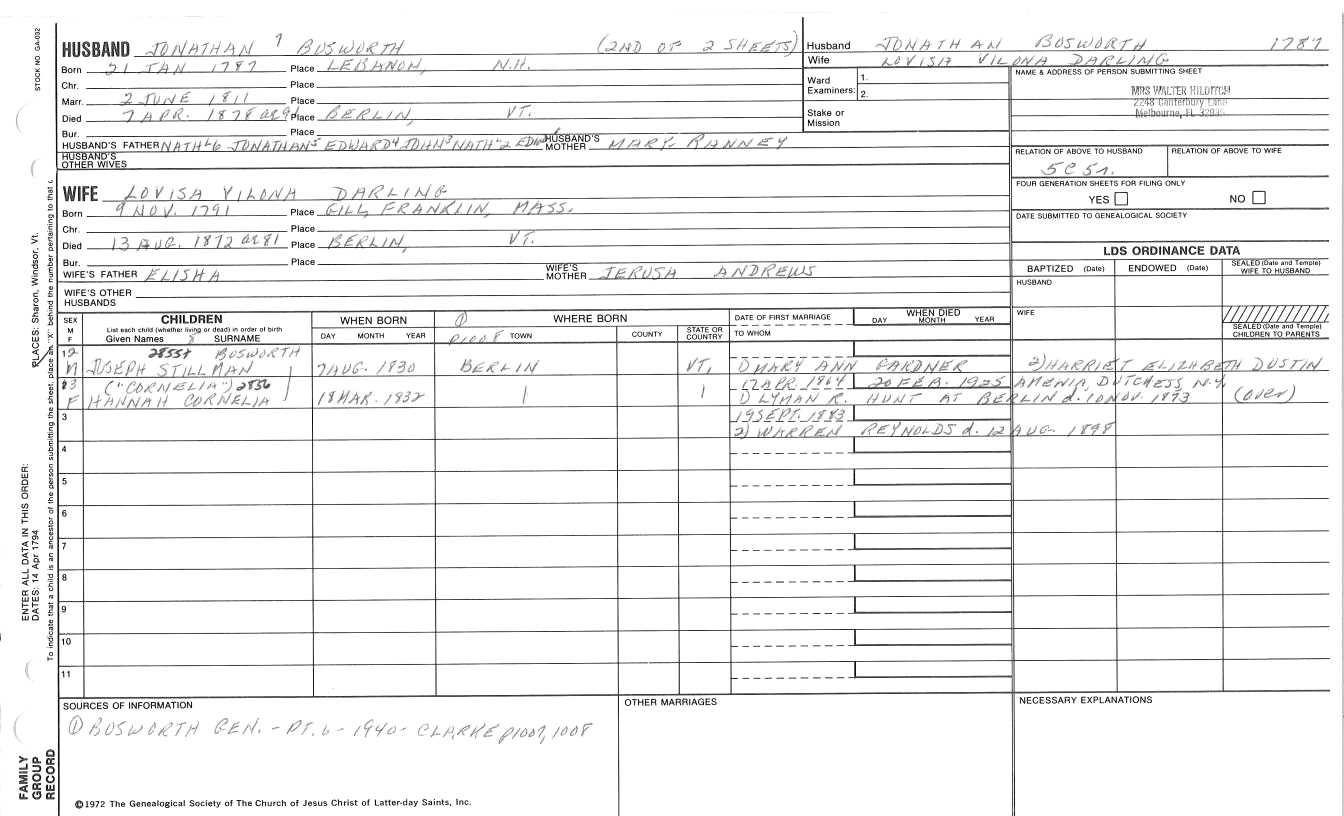 STOCK NO. GA-032
HUSBAND JONATHAN 7 BOSWORTH (2ND OF 2 SHEETS)
Born 21 JAN 1787 Place LEBANON, N.H.
Chr. Place
Marr. 2 JUNE 1811 Place
Died 7 APR. 1878 Place BERLIN, VT.
Bur. Place
HUSBAND'S FATHER NATH'L6 JONATHAN5 EDWARD4 JOHN3 NATH'L2 HUSBAND'S MOTHER MARY RANNEY
HUSBAND'S OTHER WIVES
Husband JONATHAN BOSWORTH 1787
Wife LOVISA VILONA DARLING
Ward Examiners: 1.
2.
Stake or Mission
NAME & ADDRESS OF PERSON SUBMITTING SHEET
MRS WALTER HILDITCH
2248 Canterbury Lane
Melbourne, FL 32935
RELATION OF ABOVE TO HUSBAND
RELATION OF ABOVE TO WIFE
5C5r.
FOUR GENERATION SHEETS FOR FILING ONLY
YES NO
DATE SUBMITTED TO GENEALOGICAL SOCIETY
WIFE LOVISA VILONA DARLING
Born 9 NOV. 1791 Place GILL, FRANKLIN, MASS.
Chr. Place
Died 13 AUG. 1872 ae 81 Place BERLIN, VT.
Bur. Place
WIFE'S FATHER ELISHA WIFE'S MOTHER JERUSA ANDREWS
WIFE'S OTHER HUSBANDS
LDS ORDINANCE DATA
BAPTIZED (Date) ENDOWED (Date) SEALED (Date and Temple) WIFE TO HUSBAND
HUSBAND
WIFE
SEALED (Date and Temple) CHILDREN TO PARENTS
SEX M F
CHILDREN
List each child (whether living or dead) in order of birth
Given Names 8 SURNAME
WHEN BORN
DAY MONTH YEAR
① WHERE BORN
p1008 TOWN COUNTY STATE OR COUNTRY
DATE OF FIRST MARRIAGE
TO WHOM
WHEN DIED
DAY MONTH YEAR
12 2855+ BOSWORTH
M JOSEPH STILLMAN 7 AUG. 1830 BERLIN VT. ① MARY ANN GARDNER 2) HARRIET ELIZABETH DUSTIN
13 ("CORNELIA") 2856 12 APR. 1864 20 FEB. 1925 AMENIA, DUTCHESS N.Y.
F HANNAH CORNELIA 18 MAR. 1832 1) LYMAN R. HUNT AT BERLIN d. 10 NOV. 1873 (over)
3 19 SEPT. 1883
2) WARREN REYNOLDS d. 12 AUG. 1898
4
5
6
7
8
9
10
11
SOURCES OF INFORMATION
① BOSWORTH GEN. - PT. 6 - 1940 - CLARKE p1007, 1008
OTHER MARRIAGES
NECESSARY EXPLANATIONS
©1972 The Genealogical Society of The Church of Jesus Christ of Latter-day Saints, Inc.
FAMILY GROUP RECORD
ENTER ALL DATA IN THIS ORDER:
DATES: 14 Apr 1794
PLACES: Sharon, Windsor, Vt.
To indicate that a child is an ancestor of the person submitting the sheet, place an "X" behind the number pertaining to that